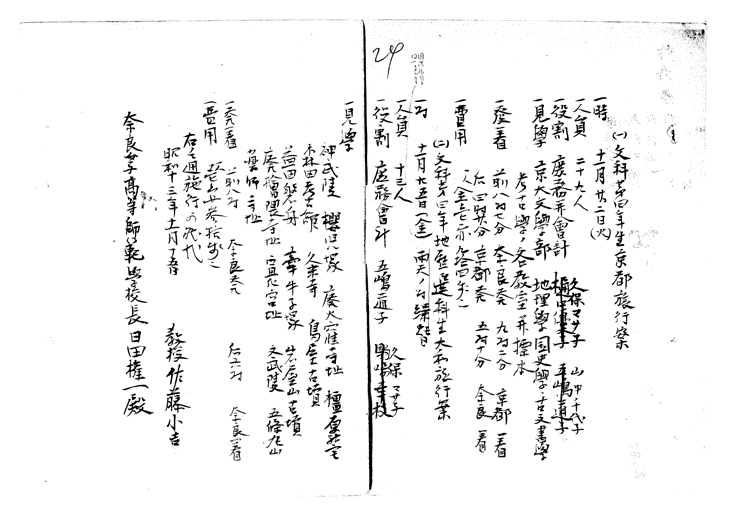 (一)文科第四年生京都旅行案
一時 十一月廿二日(火)
一人員 二十九人
一役割 庶務并會計 久保マサ子 山中千代子
五嶋道子
一見學 京大文學部 地理學 國史學 古文書學
考古學ノ各教室并標本
一發着 前八時七分奈良発 九時二分 京都着
后四時 分京都発 五時十分 奈良着
一費用 一人金壱
(二)文科第四年地歴選科生大和旅行案
一時 十一月廿五日(金) 雨天ノ時繰替
一人員 十三人
24
一役割 庶務會計 五嶋道子 久保マサ子
一見學
神武陵 櫻児塚 廃大窪寺址 橿原神宮
森田考古館 久米寺 鳥屋古墳
益田岩舟 牽牛子塚 岩屋山古墳
廃檜隈寺址 宣化宮址 文武陵 五條丸山
一発着 前八時 奈良発 后六時 奈良着
一費用
右之通施行の
昭和十三年十一月十五日
教授 佐藤小吉
奈良女子高等師範學校長日田権一殿